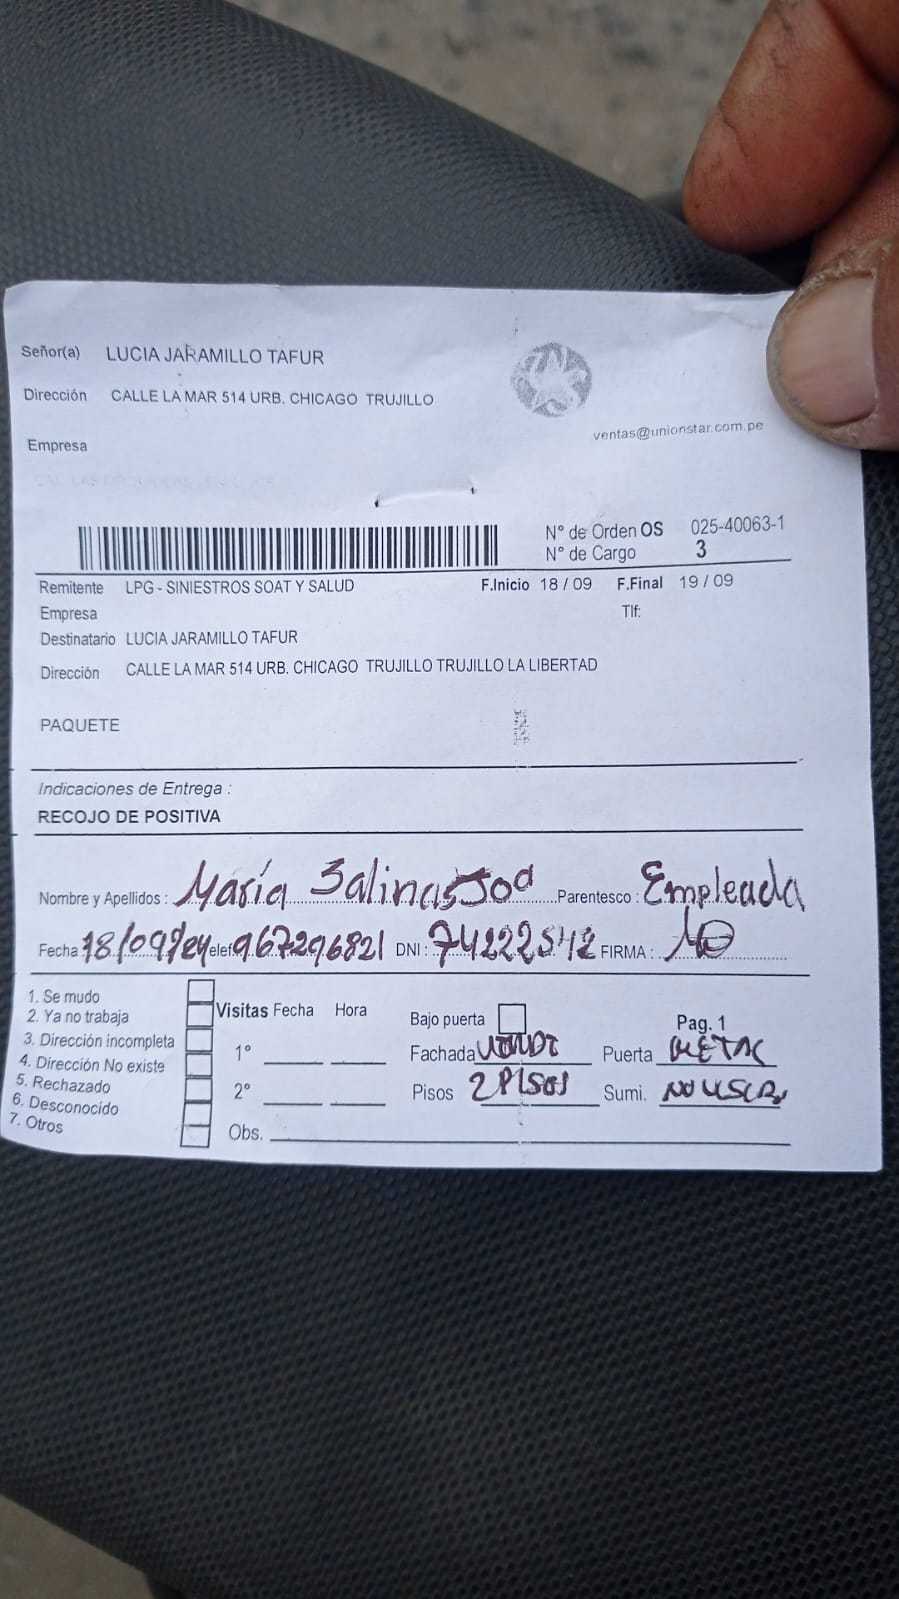 Señor(a) LUCIA JARAMILLO TAFUR
Dirección CALLE LA MAR 514 URB. CHICAGO TRUJILLO
ventas@unionstar.com.pe
Empresa
N° de Orden OS 025-40063-1
N° de Cargo 3
Remitente LPG - SINIESTROS SOAT Y SALUD F.Inicio 18 / 09 F.Final 19 / 09
Empresa Tlf:
Destinatario LUCIA JARAMILLO TAFUR
Dirección CALLE LA MAR 514 URB. CHICAGO TRUJILLO TRUJILLO LA LIBERTAD
PAQUETE
Indicaciones de Entrega :
RECOJO DE POSITIVA
Nombre y Apellidos : María Salinas Parentesco : Empleada
Fecha 18/09/24 elef 967296821 DNI : 74222542 FIRMA :
1. Se mudo
2. Ya no trabaja
3. Dirección incompleta
4. Dirección No existe
5. Rechazado
6. Desconocido
7. Otros
Visitas Fecha Hora
1°
2°
Obs.
Bajo puerta Pag. 1
Fachada Puerta METAL
Pisos 2 PISOS Sumi.